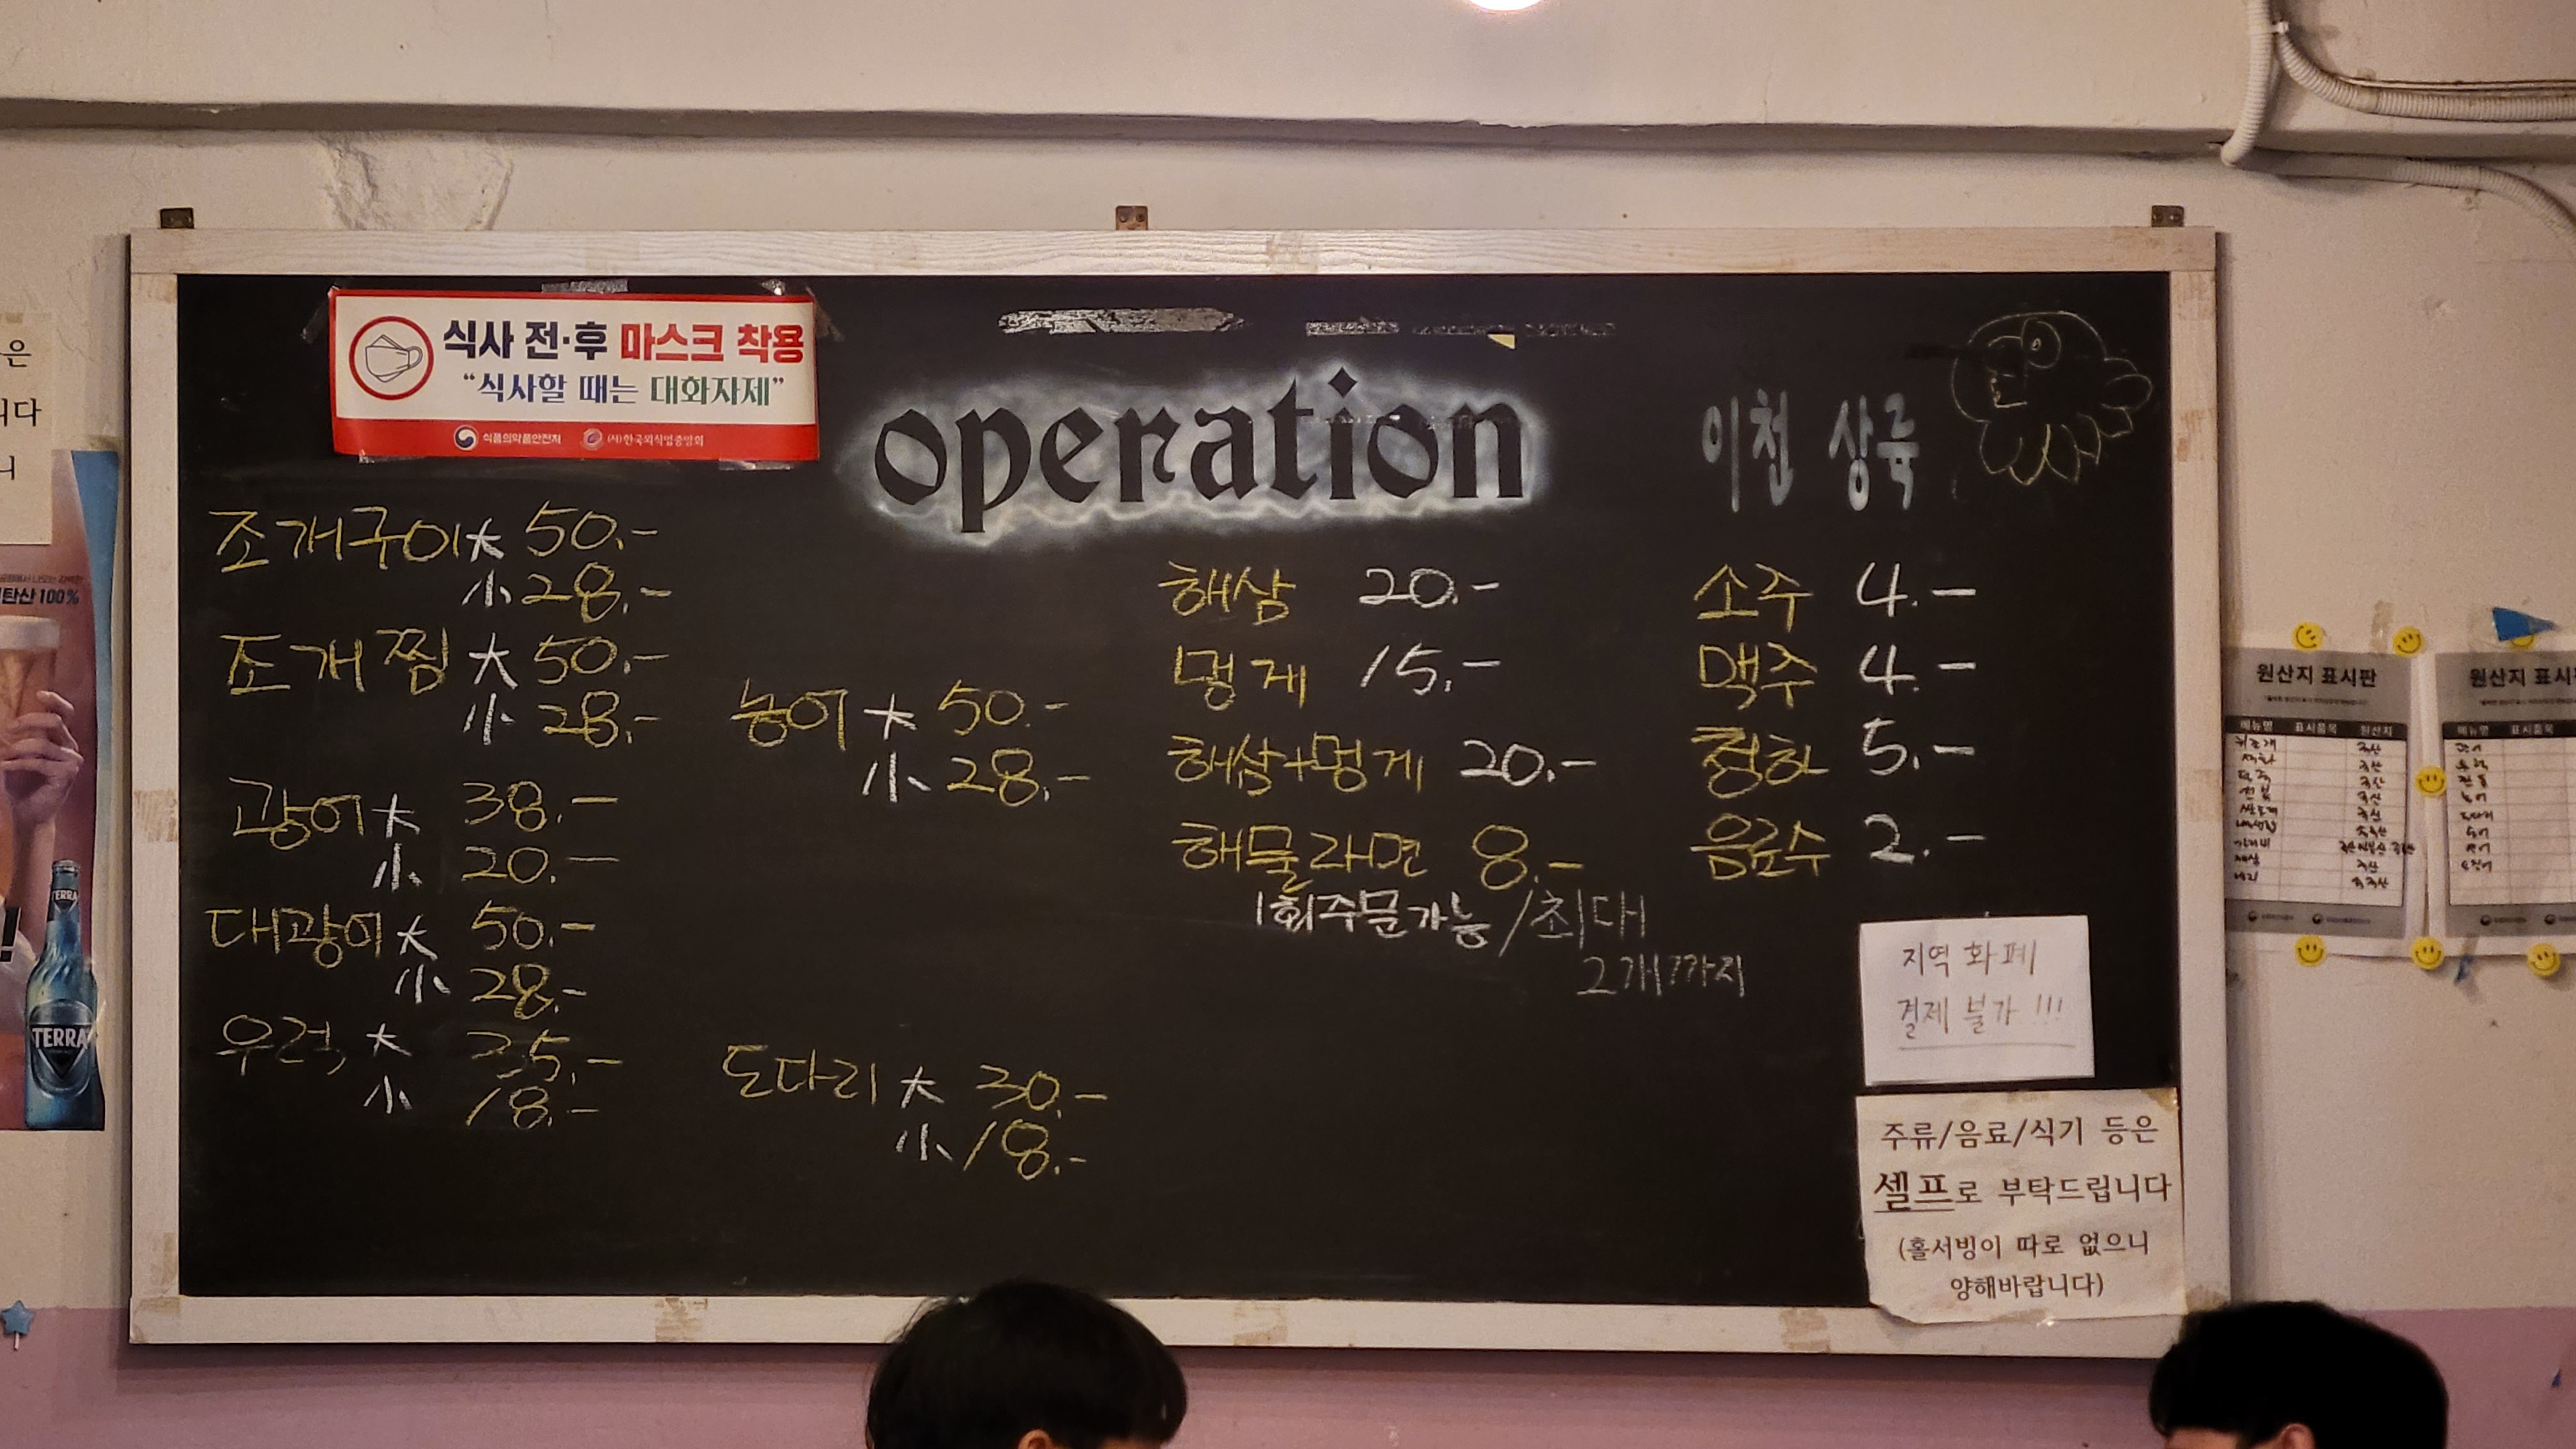 식사 전·후 마스크 착용
“식사할 때는 대화자제”
식품의약품안전처 (사)한국외식업중앙회
operation
이천 상륙
조개구이 大 50.-
小 28.-
조개찜 大 50.-
小 28.-
광어 大 38.-
小 20.-
대광어 大 50.-
小 28.-
우럭 大 35.-
小 18.-
농어 大 50.-
小 28.-
도다리 大 30.-
小 18.-
해삼 20.-
멍게 15.-
해삼+멍게 20.-
해물라면 8.-
1회주문가능/최대
2개까지
소주 4.-
맥주 4.-
청하 5.-
음료수 2.-
지역 화폐
결제 불가!!!
주류/음료/식기 등은
셀프로 부탁드립니다
(홀서빙이 따로 없으니
양해바랍니다)
은
니다
니
탄산 100%
TERRA
TERRA
원산지 표시판
메뉴명 표시품목 원산지
국산
국산
국산
국산
국산
가리비
국산
원산지 표시
메뉴명 표시품목
광어
우럭
농어
도다리